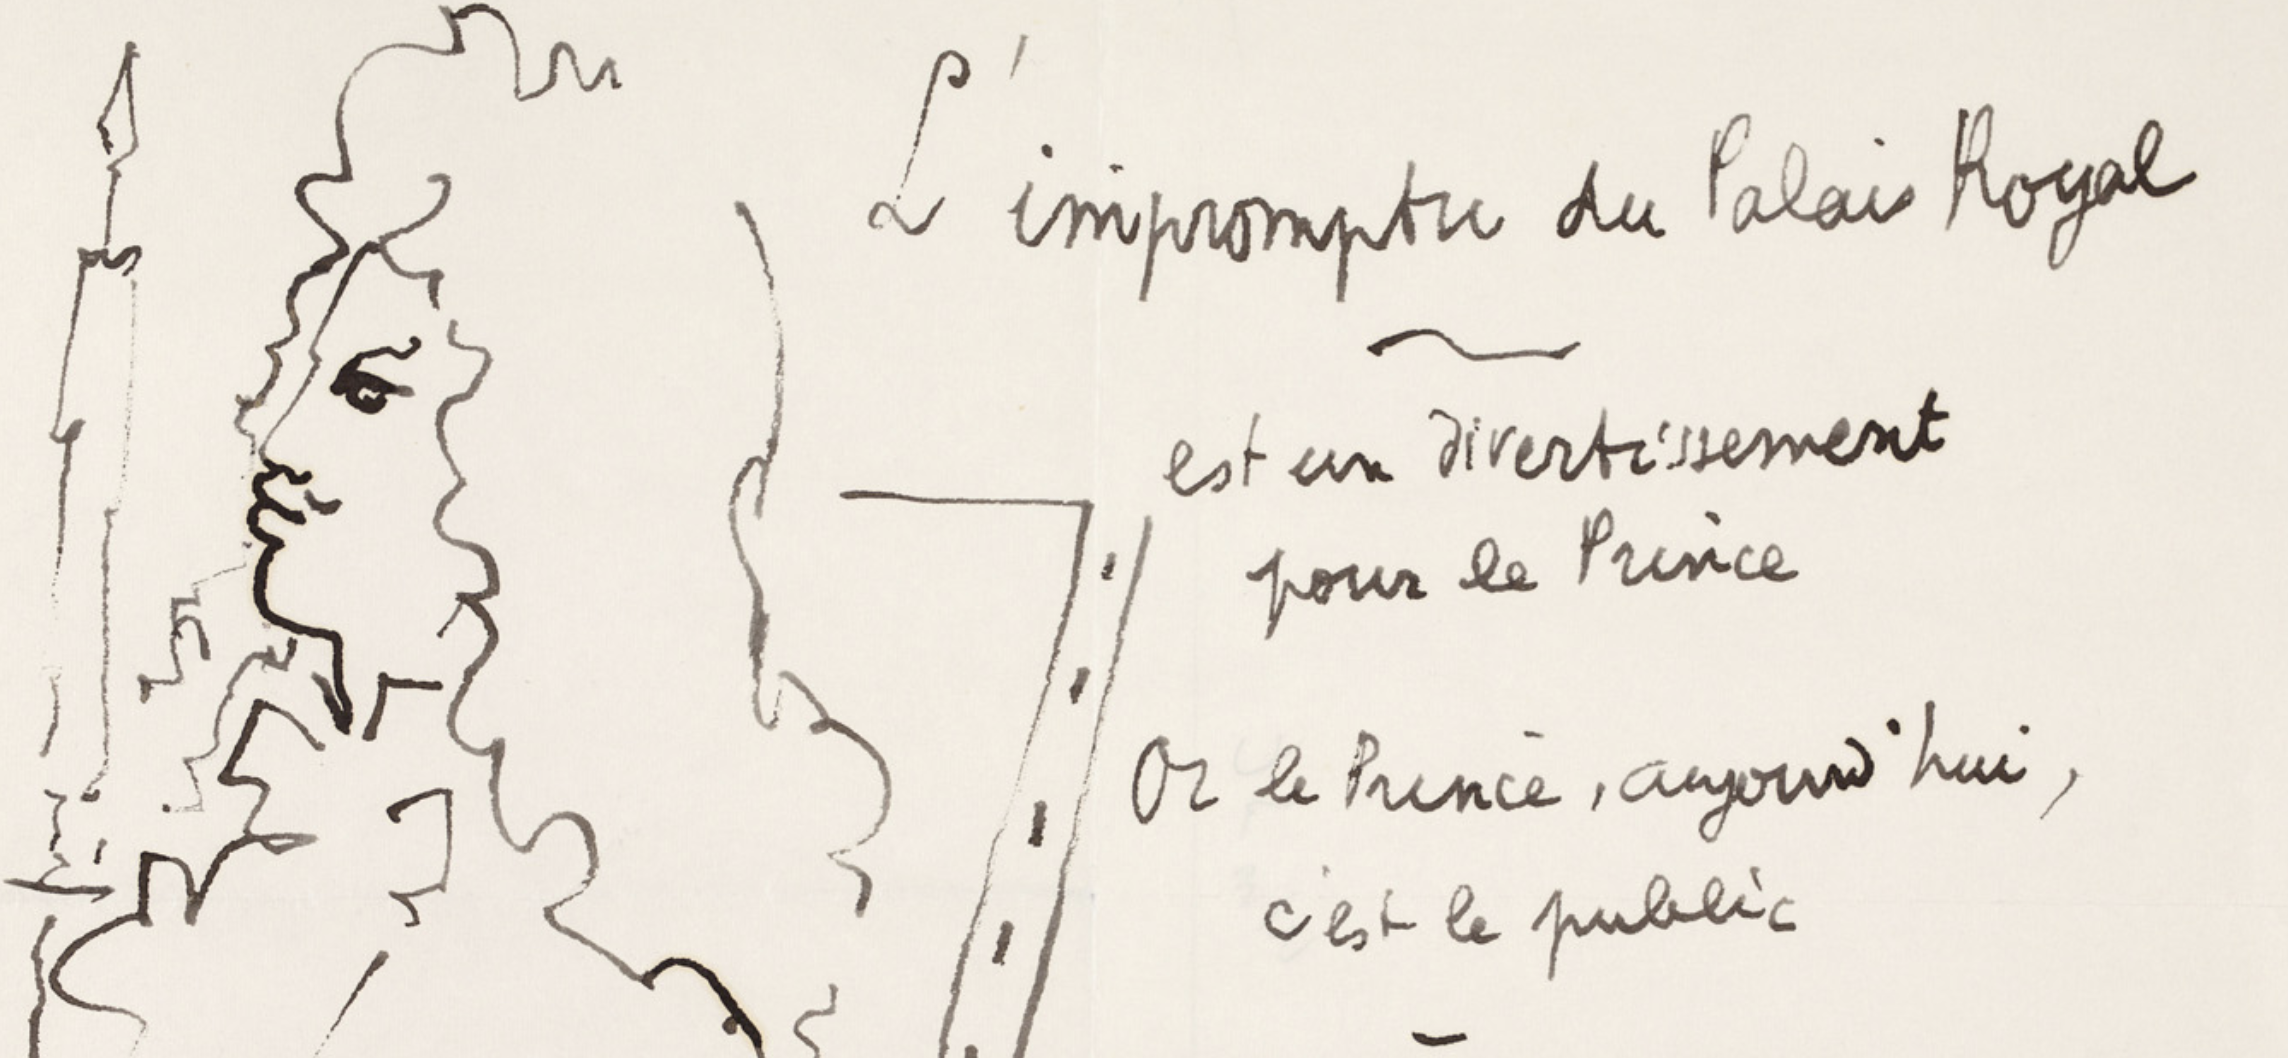 L'impromptu du Palais Royal
est un divertissement
pour le Prince
Or le Prince, aujourd'hui,
c'est le public